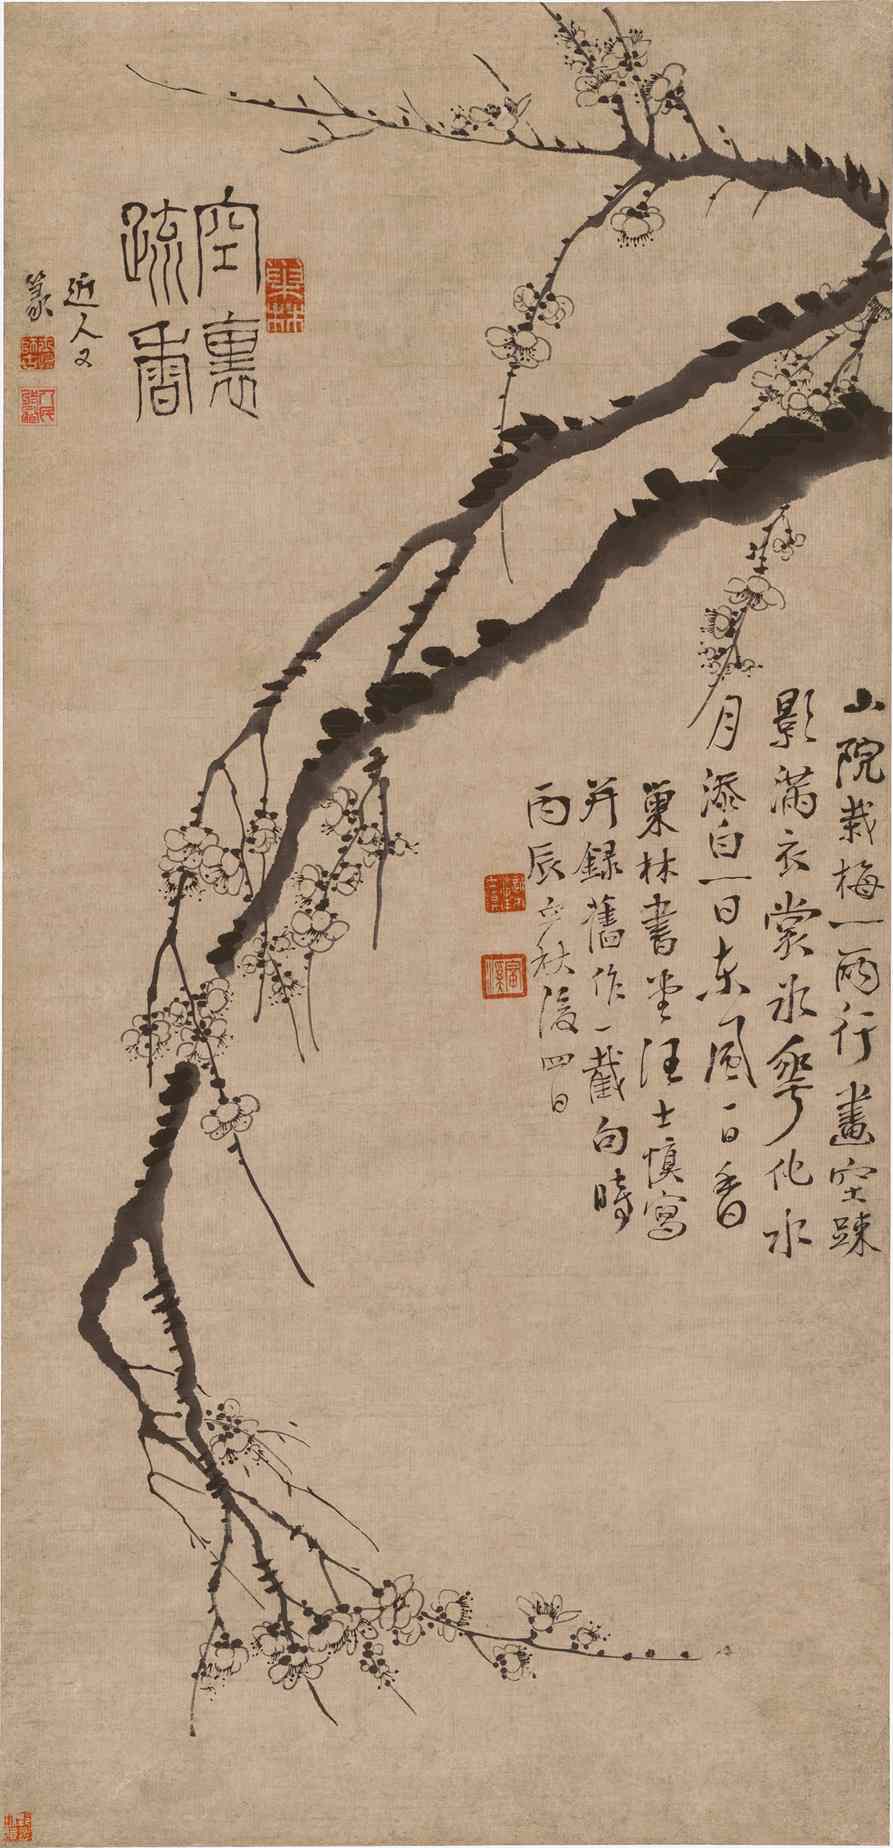 空裏
疏香
近人又
篆
巢林
山院栽梅一兩行畫空踈
影滿衣裳冰華化水
月添白一日東風一日香
巢林書堂汪士慎寫
并録舊作一截句時
丙辰立秋後四日